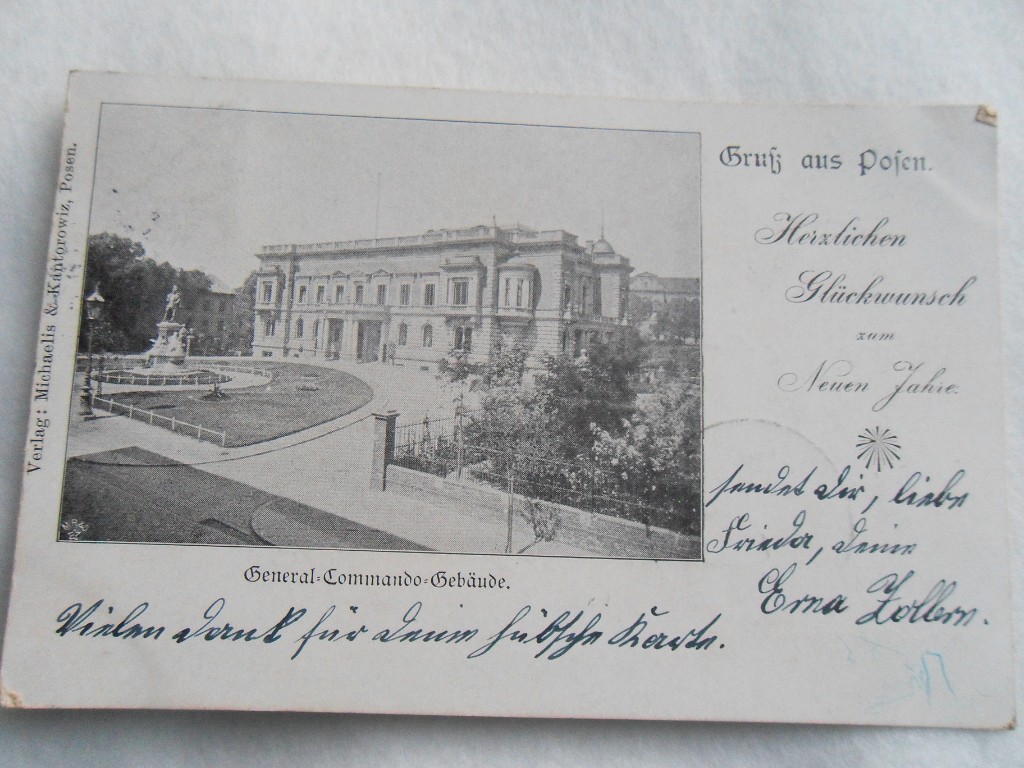 Verlag: Michaelis & Kantorowiz, Posen.
Gruß aus Posen.
Herzlichen
Glückwunsch
zum
Neuen Jahre.
sendet dir, liebe
Frieda, deine
Erna
General-Commando-Gebäude.
Vielen Dank für deine hübsche Karte.